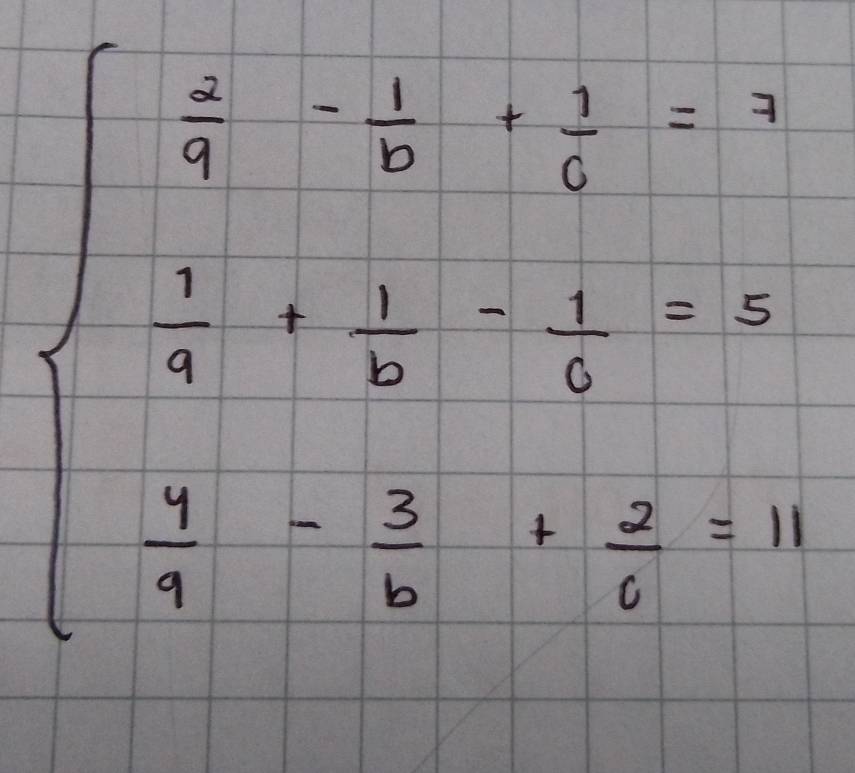 2/a - 1/b + 1/c = 7
1/a + 1/b - 1/c = 5
4/a - 3/b + 2/c = 11